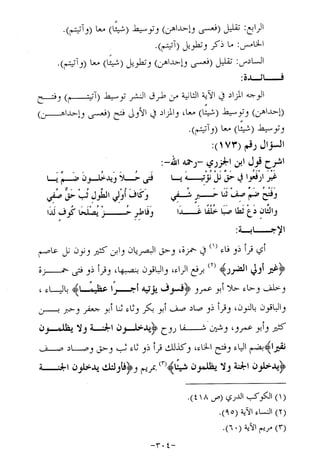 الرابع: تقليل (فعسى وإحداهن) وتوسيط (شيئًا) معا (وآتيتم).
الخامس: ما ذكر وتطويل (آتيتم).
السادس: تقليل (فعسى وإحداهن) وتطويل (شيئًا) معا (وآتيتم).
فــائــدة:
الوجه المزاد في الآية الثانية من طرق النشر توسيط (آتيتــم) وفتــح
(إحداهن) وتوسيط (شيئًا) معا، والمزاد في الأولى فتح (فعسى وإحداهــن)
وتوسيط (شيئًا) معا (وآتيتم).
السؤال رقم (١٧٣):
اشرح قول ابن الجزري –رحمه الله–:
غَيْرَ ارْفَعُوا فِي حَقِّ نَلْ نُؤْتِيــهِ يــا
فَتًى حُــلا وَيَدْخُلــونَ ضَــمُّ يَــا
وَفَتْحُ ضَمٍّ صِفْ ثَنا حَــبْرٍ شَــفِي
وَكَافَ أُولَى الطَّولِ ثُبْ حَقٌّ صُفِي
وَالثَّانِ دَعْ ثَطَا صَبَا خُلْفًا غَــدَا
وَفَاطِرٍ حُــزْ يُصْلِحَا كُوفٍ لَدَا
الإجــابــة:
أي قرأ ذو فاء (١) في حمزة، وحق البصريان وابن كثير ونون نل عاصم
﴿غير أولي الضرر﴾ (٢) برفع الراء، والباقون بنصبها، وقرأ ذو فتى حمــزة
وخلف وحاء حلا أبو عمرو ﴿فسوف يؤتيه أجــرًا عظيمــا﴾ باليــاء ،
والباقون بالنون، وقرأ ذو صاد صف أبو بكر وثاء ثنا أبو جعفر وحبر بــن
كثير وأبو عمرو، وشين شــفا روح ﴿يدخلــون الجنــة ولا يظلمــون
نقيرا﴾ بضم الياء وفتح الخاء، وكذلك قرأ ذو ثاء ثب وحق وصــاد صــف
﴿يدخلون الجنة ولا يظلمون شيئًا﴾ (٣) بمريم و﴿فأولئك يدخلون الجنــة
(١) الكوكب الدري (ص ٤١٨).
(٢) النساء الآية (٩٥).
(٣) مريم الآية (٦٠).
–٣٠٤–